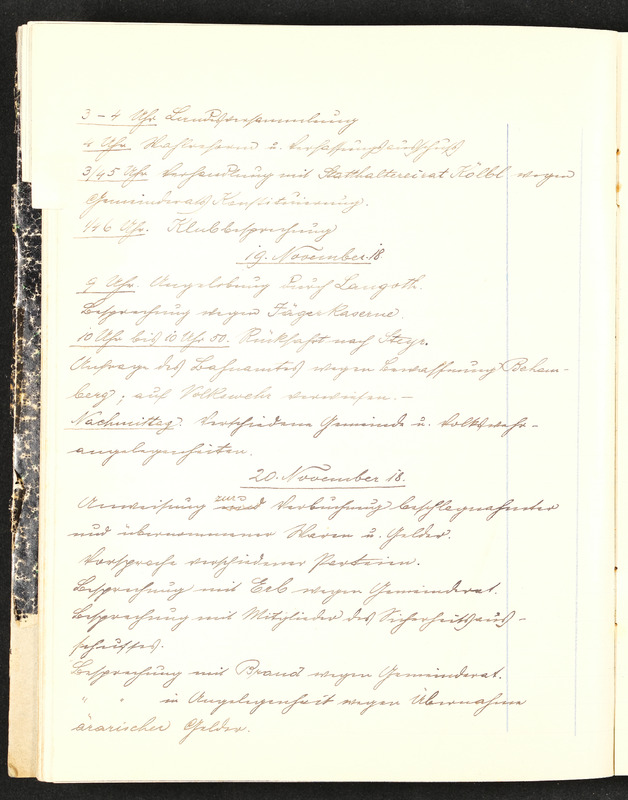 3 – 4 Uhr Landesversammlung
4 Uhr Wahlreform u. Verfassungsausschuß
3/45 Uhr Verhandlung mit Statthaltereirat Kölbl wegen
Gemeinderats Konstituierung.
1/46 Uhr. Klubbesprechung
19. November 18.
9 Uhr. Angelobung durch Langoth.
Besprechung wegen Jägerkaserne.
10 Uhr bis 10 Uhr 50. Rückfahrt nach Steyr.
Anfrage des Bahnamtes wegen Bewaffnung Beham-
berg; auf Volkswehr verwiesen. –
Nachmittag. Verschiedene Gemeinde u. Volkswehr-
angelegenheiten.
20. November 18.
Anweisung zur Verbuchung beschlagnahmter
und übernommener Waren u. Gelder.
Vorsprache verschiedener Parteien.
Besprechung mit Erb wegen Gemeinderat.
Besprechung mit Mitglieder des Sicherheitsaus-
schusses.
Besprechung mit Brand wegen Gemeinderat.
" " in Angelegenheit wegen Übernahme
ärarischer Gelder.